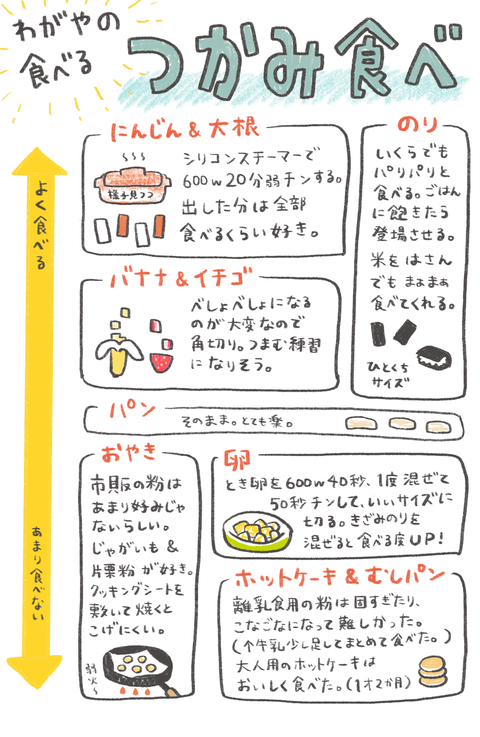 わがやの
食べる
つかみ食べ
よく食べる
あまり食べない
にんじん&大根
シリコンスチーマーで
600w20分弱チンする。
出した分は全部
食べるくらい好き。
様子見つつ
のり
いくらでも
パリパリと
食べる。ごはん
に飽きたら
登場させる。
米をはさん
でもまぁまぁ
食べてくれる。
ひとくち
サイズ
バナナ&イチゴ
べしょべしょになる
のが大変なので
角切り。つまむ練習
になりそう。
パン
そのまま。とても楽。
おやき
市販の粉は
あまり好みじゃ
ないらしい。
じゃがいも&
片栗粉が好き。
クッキングシートを
敷いて焼くと
こげにくい。
弱火〜
卵
とき卵を600w40秒、1度混ぜて
50秒チンして、いいサイズに
切る。きざみのりを
混ぜると食べる度UP!
ホットケーキ&むしパン
離乳食用の粉は固すぎたり、
こなごなになって難しかった。
(个牛乳少し足してまとめて食べた。)
大人用のホットケーキは
おいしく食べた。(1才2か月)